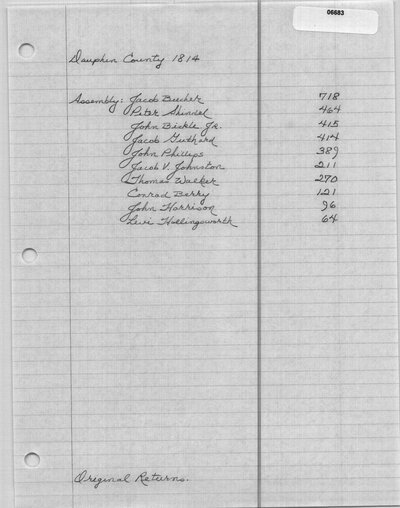 06683
Dauphin County 1814
Assembly: Jacob Bucher 718
Peter Shindel 464
John Bickle Jr. 415
Jacob Guthard 414
John Phillips 389
Jacob V. Johnston 211
Thomas Walker 270
Conrad Barry 121
John Harrison 96
Levi Hollingsworth 64
Original Returns.